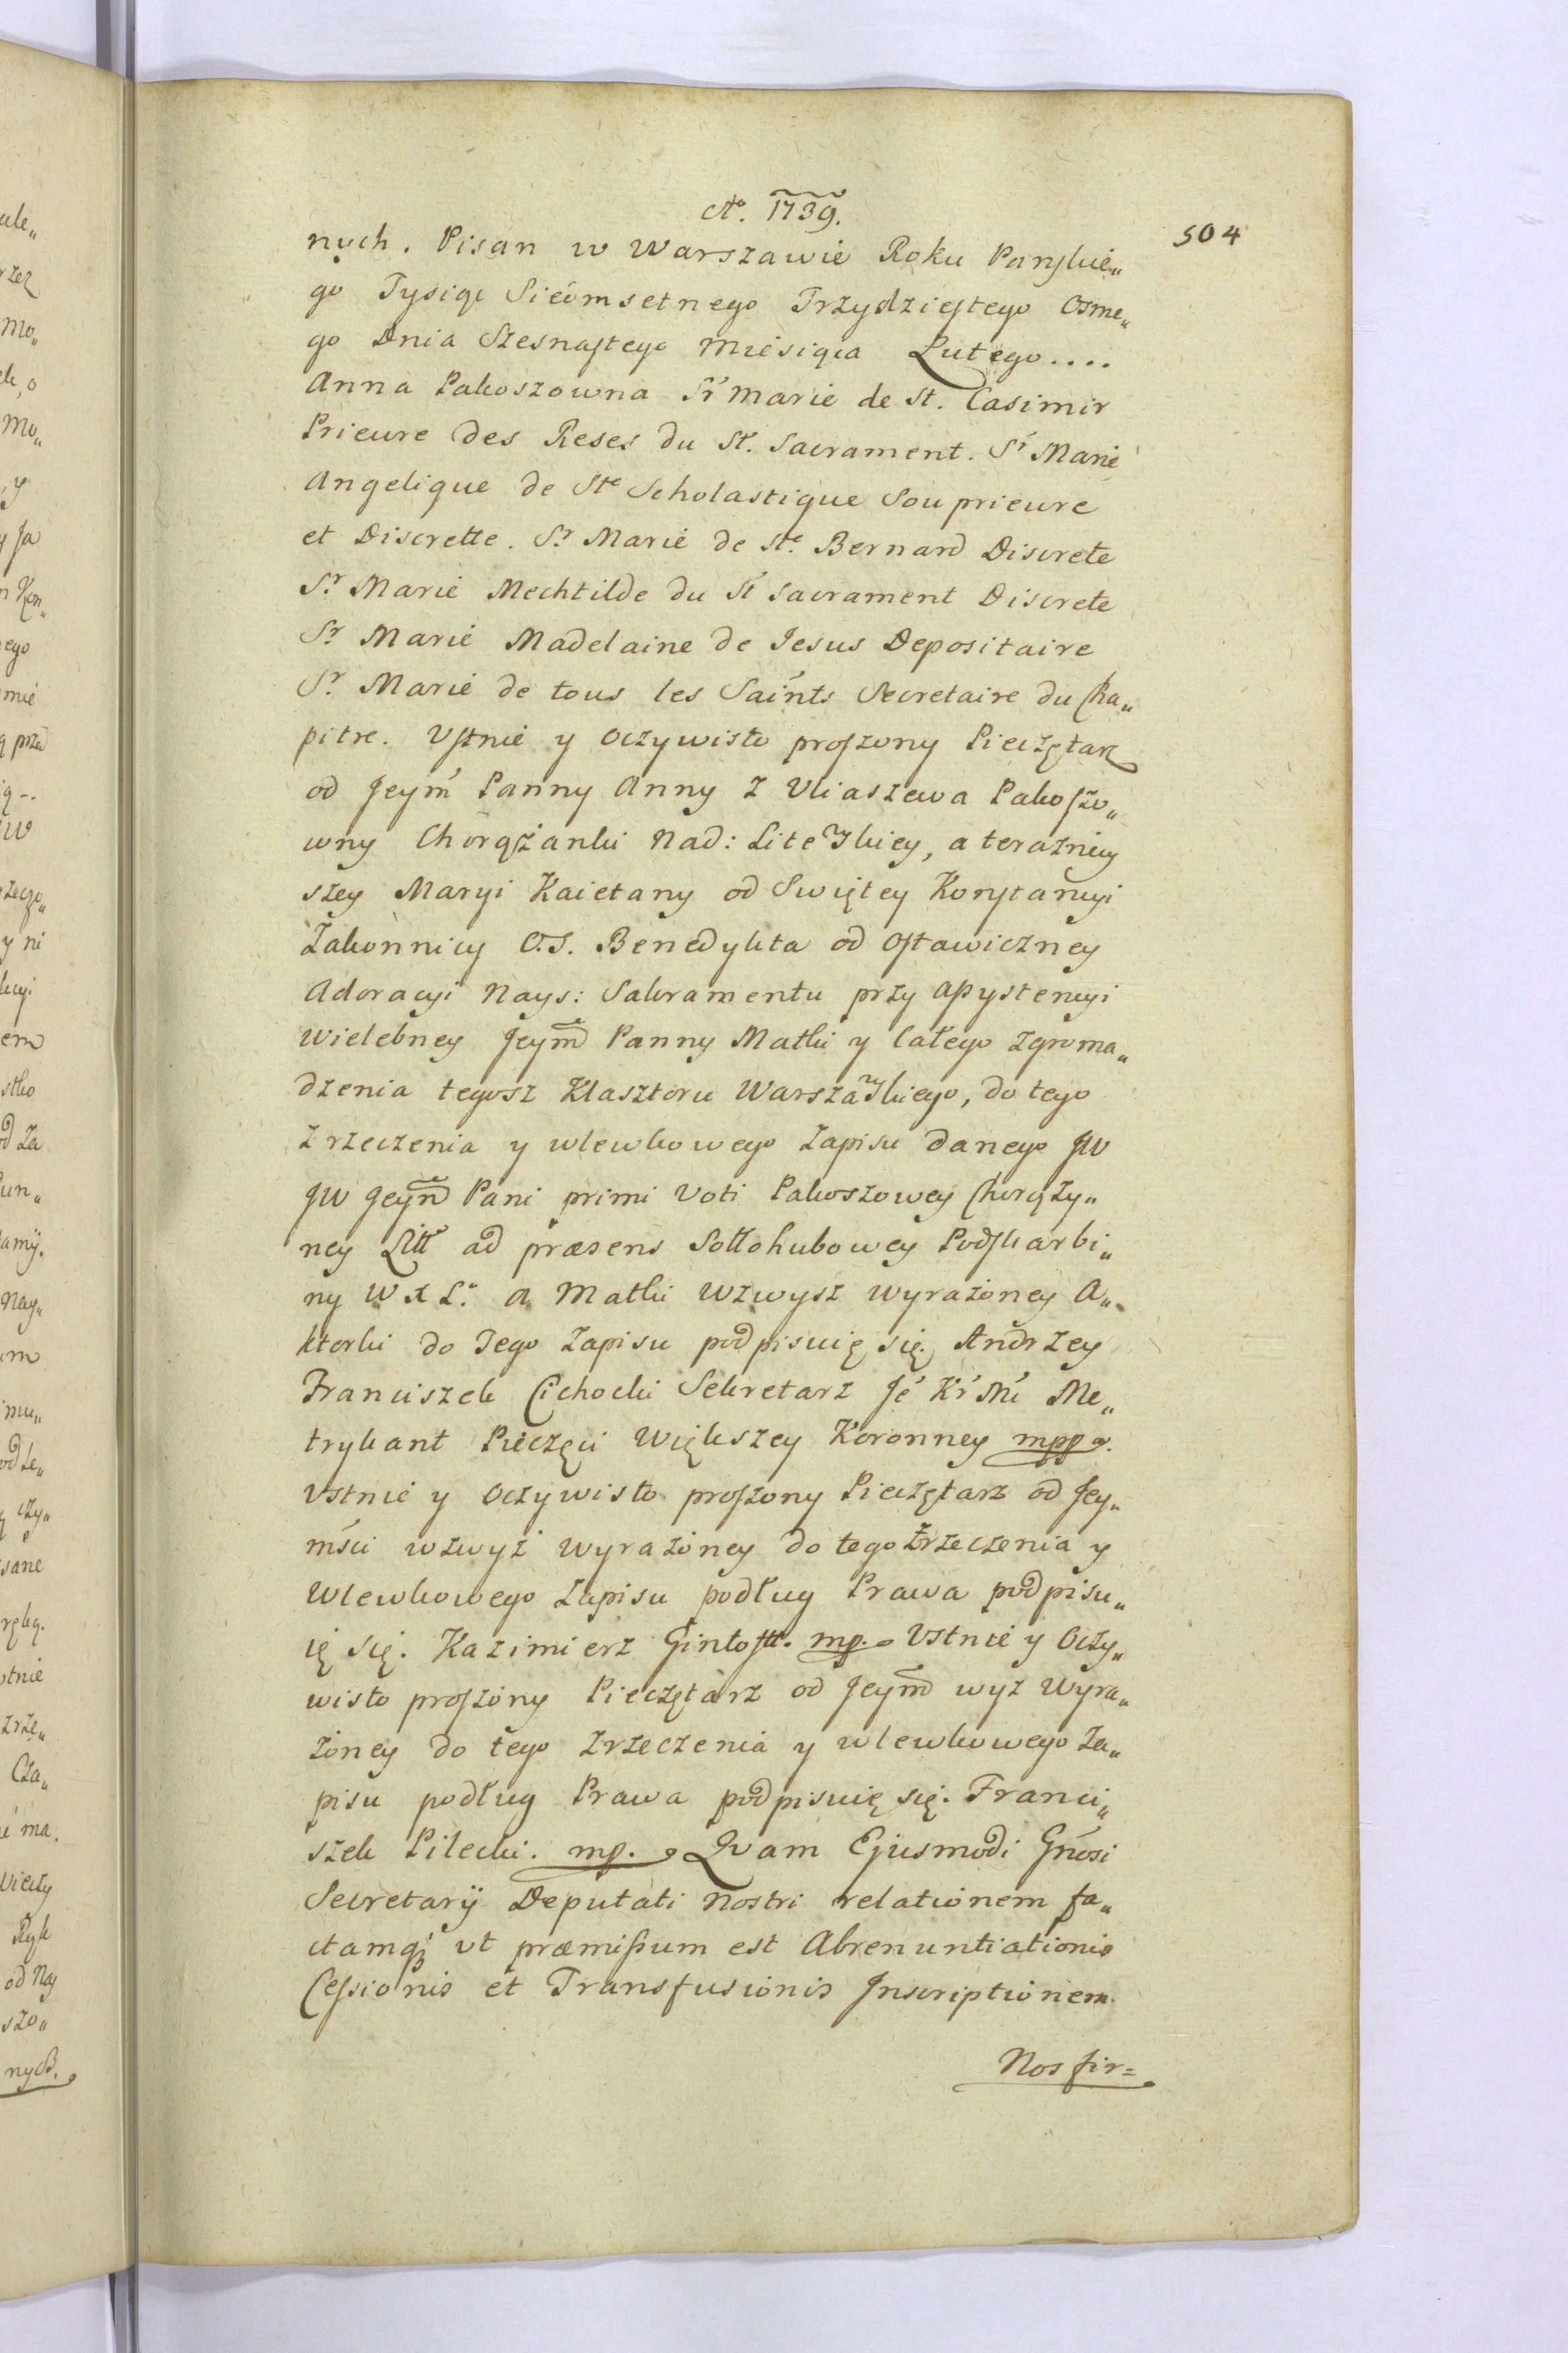 Aō. 1739.
504
nych. Pisan w Warszawie Roku Panskie„
go Tysiąc Siedmsetnego Trzydziestego Osme„
go Dnia Szesnastego Miesiąca Lutego....
Anna Pakoszowna Sr Marie de St. Casimir
Prieure des Reses du St. Sacrament. Sr Marie
Angelique de Ste Scholastique Souprieure
et Discrette. Sr Marie de Ste. Bernard Discrete
Sr Marie Mechtilde du St Sacrament Discrete
Sr Marie Madelaine de Jesus Depositaire
Sr Marie de tous les Saints Secretaire du Cha„
pitre. Vstnie y oczywisto proszony Pieczętarz
od Jeym Panny Anny z Uliaszewa Pakoszo„
wny Chorążanki Nad: Litesskiey, a terazniey
szey Maryi Kaietany od Swiętey Konstancyi
Zakonnicy O.S. Benedykta od Ostawiczney
Adoracyi Nays: Sakramentu przy assystencyi
Wielebney Jeym Panny Matki y Całego Zgroma„
dzenia tegosz Klasztoru Warszasskiego, do tego
zrzeczenia y wlewkowego Zapisu danego JW
JW Jeym Pani primi Voti Pakoszowey Chorąży„
ney Litt ad præsens Sołłohubowey Podskarbi„
ny W X L. a Matki wzwysz wyrażoney A„
ktorki do Tego Zapisu podpisuię się. Andrzey
Franciszek Cichocki Sekretarz Je Kr Mci Me„
trykant Pieczęci Większey Koronney mpp.
Vstnie y oczywisto proszony Pieczętarz od Jey„
mści wzwyż wyrażoney do tego Zrzeczenia y
Wlewkowego Zapisu podług Prawa podpisu„
ię się. Kazimierz Gintostt. mp. Vstnie y Oczy„
wisto proszony Pieczętarz od Jeym wyż Wyra„
żoney do tego zrzeczenia y wlewkowego Za„
pisu podług Prawa podpisuię się. Franci„
szek Pilecki. mp. Qvam Ejusmodi Gnosi
Secretarij Deputati Nostri relationem fa„
ctamq; vt præmissum est Abrenuntiationis
Cessionis et Transfusionis Jnscriptionem
Nos fir=